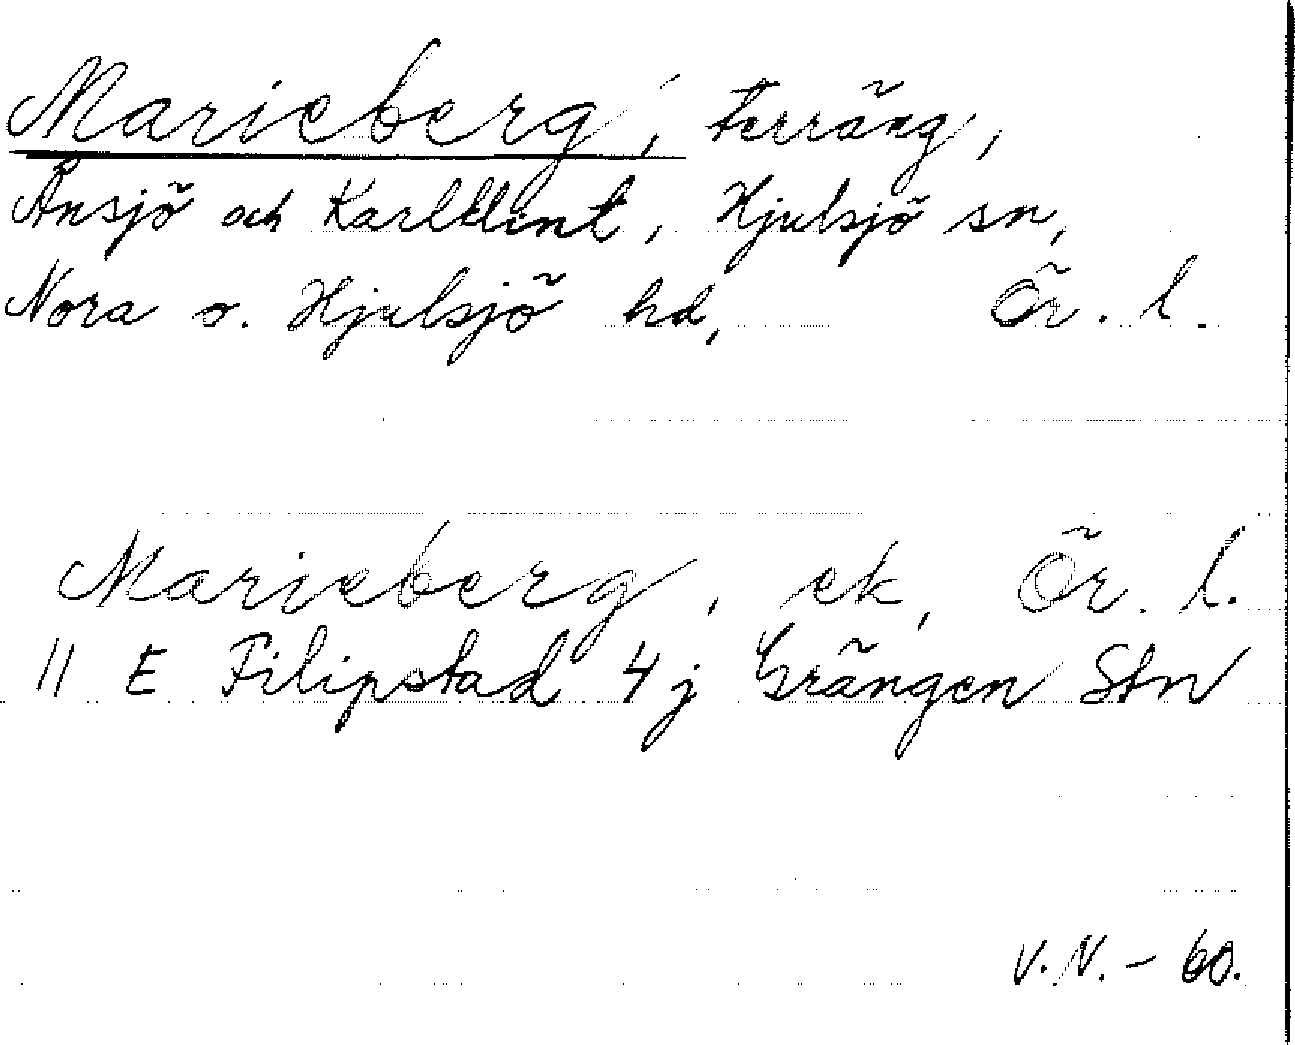 Marieberg, terräng,
Ånsjö och Karlklint, Hjulsjö sn,
Nora o. Hjulsjö hd, Ör. l.
Marieberg, ek, Ör. l.
11 E Filipstad 4 j Grängen Stn
V.N. - 60.